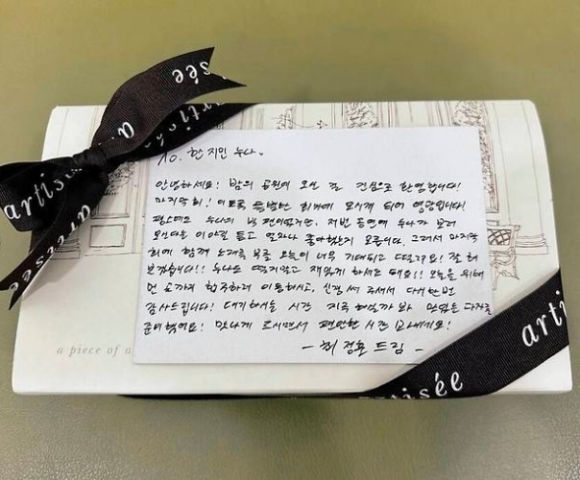 artisée
To. 한지민 누나.
안녕하세요! 밤의 공원에 오신 걸 진심으로 환영합니다!
마지막회! 이토록 특별한 회차에 모시게 되어 영광입니다!
평소에도 누나의 팬이었지만, 저번 공연에 누나가 보러
오신다는 이야길 듣고 얼마나 좋아했는지 모릅니다. 그래서 마지막
회에 함께 노래를 부를 오늘이 너무 기대되고 떨려요! 잘 해
보겠습니다!! 누나도 떨지말고 재밌게 하셔도 돼요!! 오늘을 위해
먼 곳까지 이동하시고, 신경 써 주셔서 다시 한번
감사드립니다! 대기하시는 시간 지루하실까 봐 맛있는 다과를
준비했어요! 맛나게 드시면서 편안한 시간 보내세요!
- 최정훈 드림 -
a piece of a
artisée